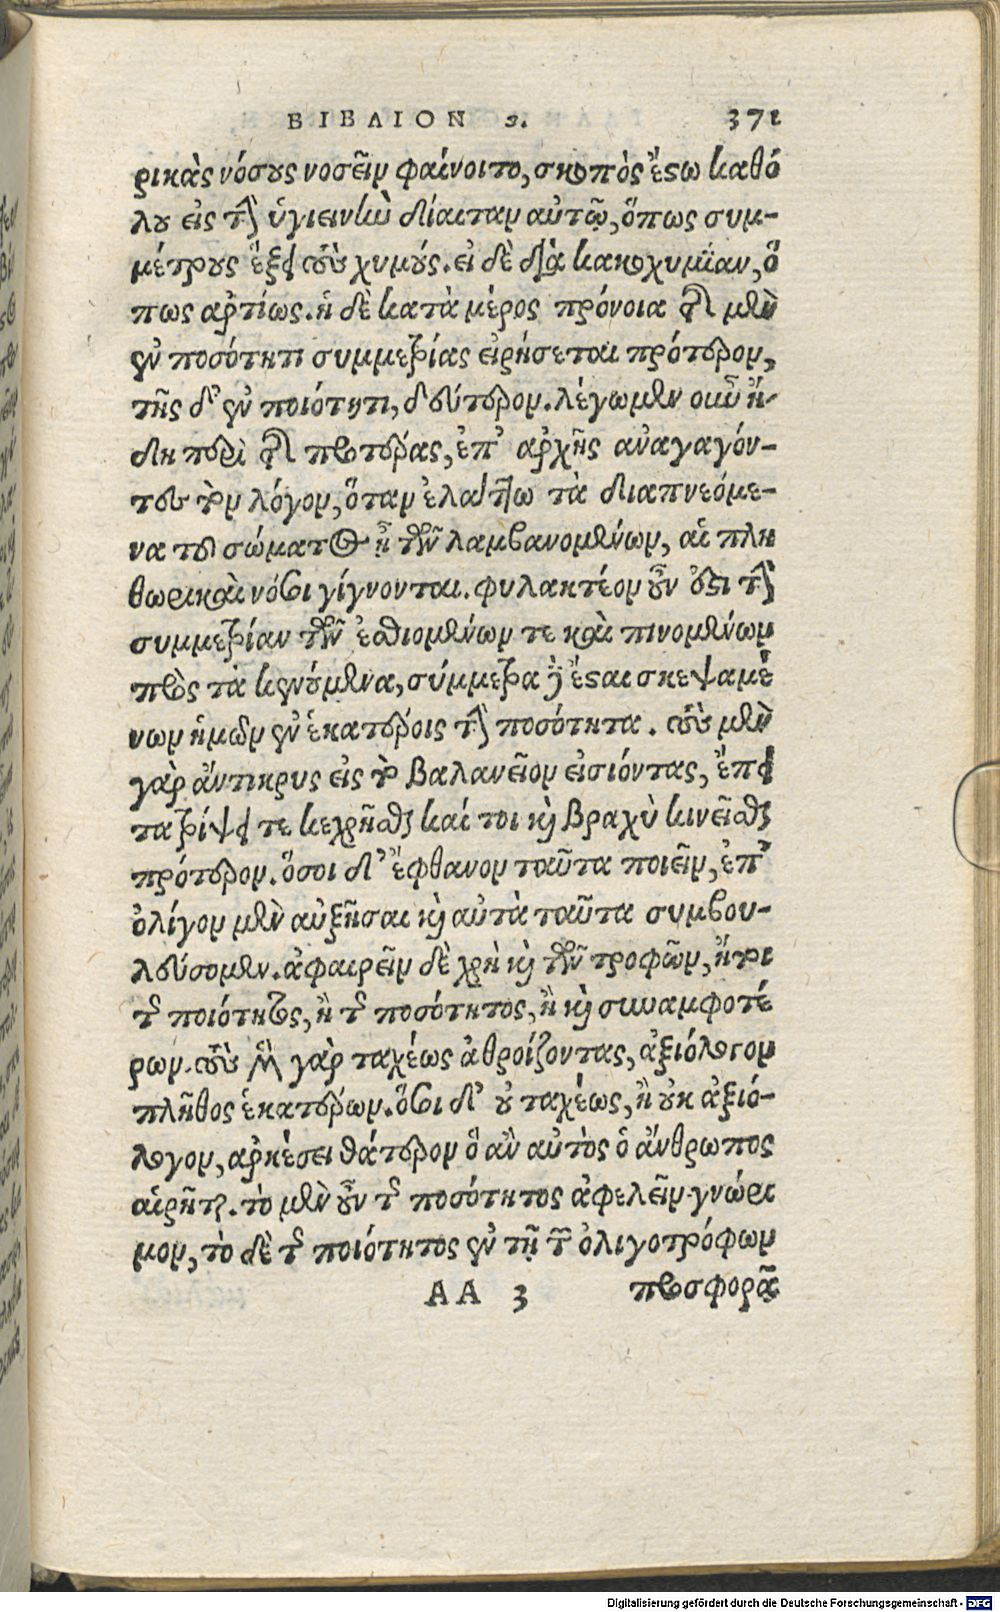 ΒΙΒΛΙΟΝ ϛ. 371
ρικὰς νόσους νοσεῖν φαίνοιτο, σκοπὸς ἔστω καθό
λου εἰς τὴν ὑγιεινὴν δίαιταν αὐτῷ, ὅπως συμ-
μέτρους ἕξει τοὺς χυμούς. εἰ δὲ διὰ κακοχυμΐαν, ὅ
πως ἀρτίως. ἡ δὲ κατὰ μέρος πρόνοια τῆς μὲν
ἐν ποσότητι συμμετρίας εἰρήσεται πρότερον,
τῆς δ' ἐν ποιότητι, δεύτερον. λέγωμεν οὖν ἤ-
δη περὶ τῆς προτέρας, ἐπ' ἀρχῆς ἀναγαγόν-
τες τὸν λόγον, ὅταν ἐλάττω τὰ διαπνεόμε-
να τοῦ σώματος ᾖ τῶν λαμβανομένων, αἱ πλη
θωρικαὶ νόσοι γίγνονται. φυλακτέον οὖν ἐστι τὴν
συμμετρίαν τῶν ἐσθιομένων τε καὶ πινομένων
πρὸς τὰ κενούμενα, σύμμετρα δ' ἔσται σκεψαμέ
νων ἡμῶν ἐν ἑκατέροις τὴν ποσότητα. τοὺς μὲν
γὰρ ἄντικρυς εἰς τὸ βαλανεῖον εἰσιόντας, ἔπει
τα τρίψει τε κεχρῆσθαι καί τοι καὶ βραχὺ κινεῖσθαι
πρότερον. ὅσοι δ' ἔφθανον ταῦτα ποιεῖν, ἐπ'
ὀλίγον μὲν αὐξῆσαι καὶ αὐτὰ ταῦτα συμβου-
λεύσομεν. ἀφαιρεῖν δὲ χρὴ καὶ τῶν τροφῶν, ἤτοι
τῆς ποιότητος, ἢ τῆς ποσότητος, ἢ καὶ συναμφοτέ
ρων. τοὺς μὲν γὰρ ταχέως ἀθροίζοντας, ἀξιόλογον
πλῆθος ἑκατέρων. ὅσοι δ' οὐ ταχέως, ἢ οὐκ ἀξιό-
λογον, ἀρκέσει θάτερον ὃ ἂν αὐτὸς ὁ ἄνθρωπος
αἱρῆται. τὸ μὲν οὖν τῆς ποσότητος ἀφελεῖν γνώρι
μον, τὸ δὲ τῆς ποιότητος ἐν τῇ τῶν ὀλιγοτρόφων
ΑΑ 3 προσφορᾷ
Digitalisierung gefördert durch die Deutsche Forschungsgemeinschaft - DFG